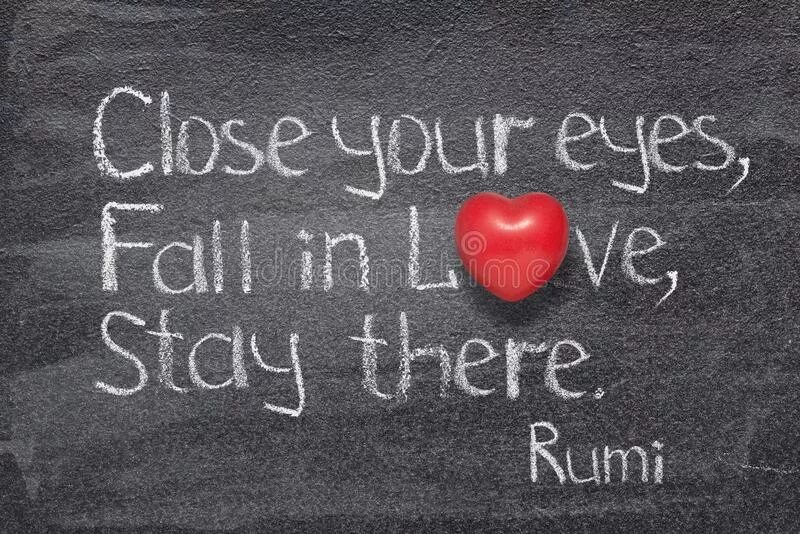 Close your eyes,
Fall in L❤ve,
Stay there.
Rumi
dreamstime